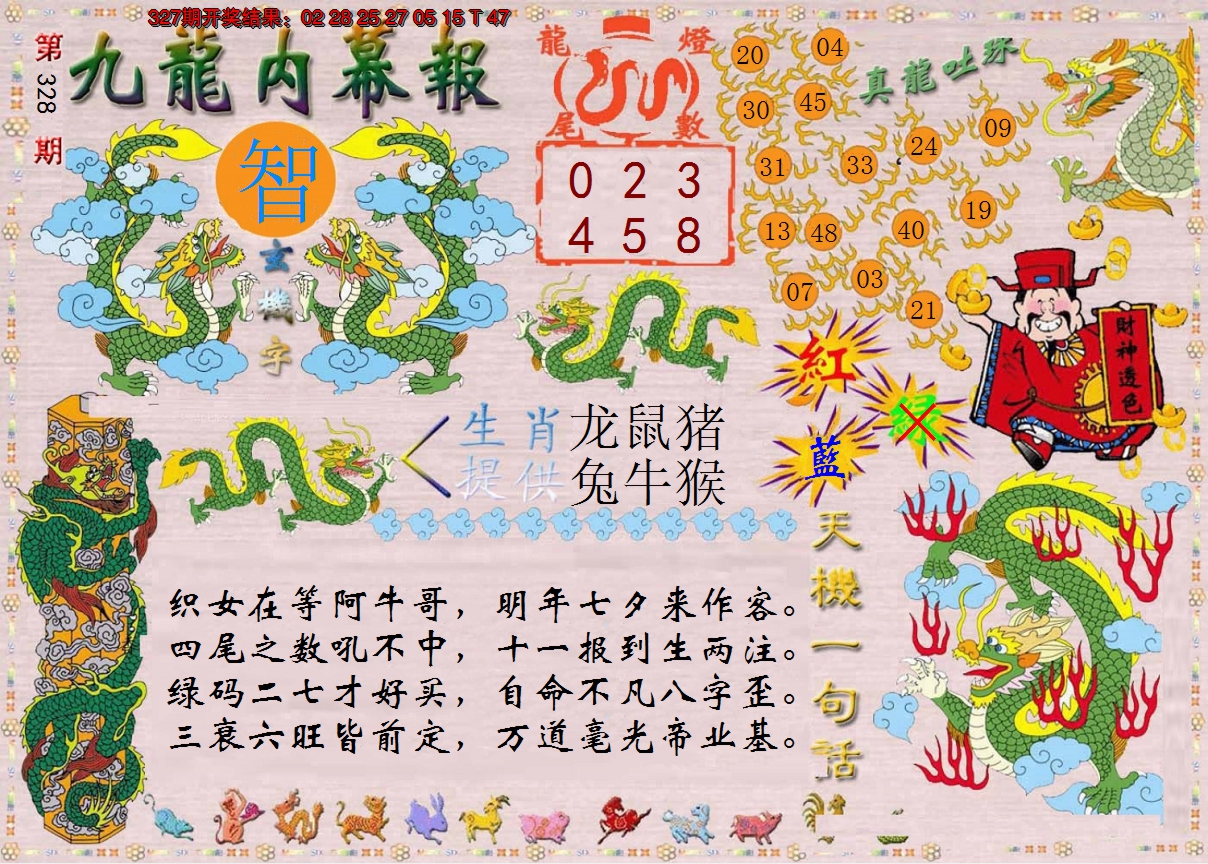 327期开奖结果：02 28 25 27 05 15 T 47
第328期
九龍内幕報
智
玄機字
龍燈尾數
0 2 3
4 5 8
真龍吐珠
20 04
30 45
31 33 24 09
13 48 40 19
07 03 21
財神透色
紅
绿
藍
生肖提供
龙鼠猪
兔牛猴
天機一句話
织女在等阿牛哥，明年七夕来作客。
四尾之数吼不中，十一报到生两注。
绿码二七才好买，自命不凡八字歪。
三衰六旺皆前定，万道毫光帝业基。